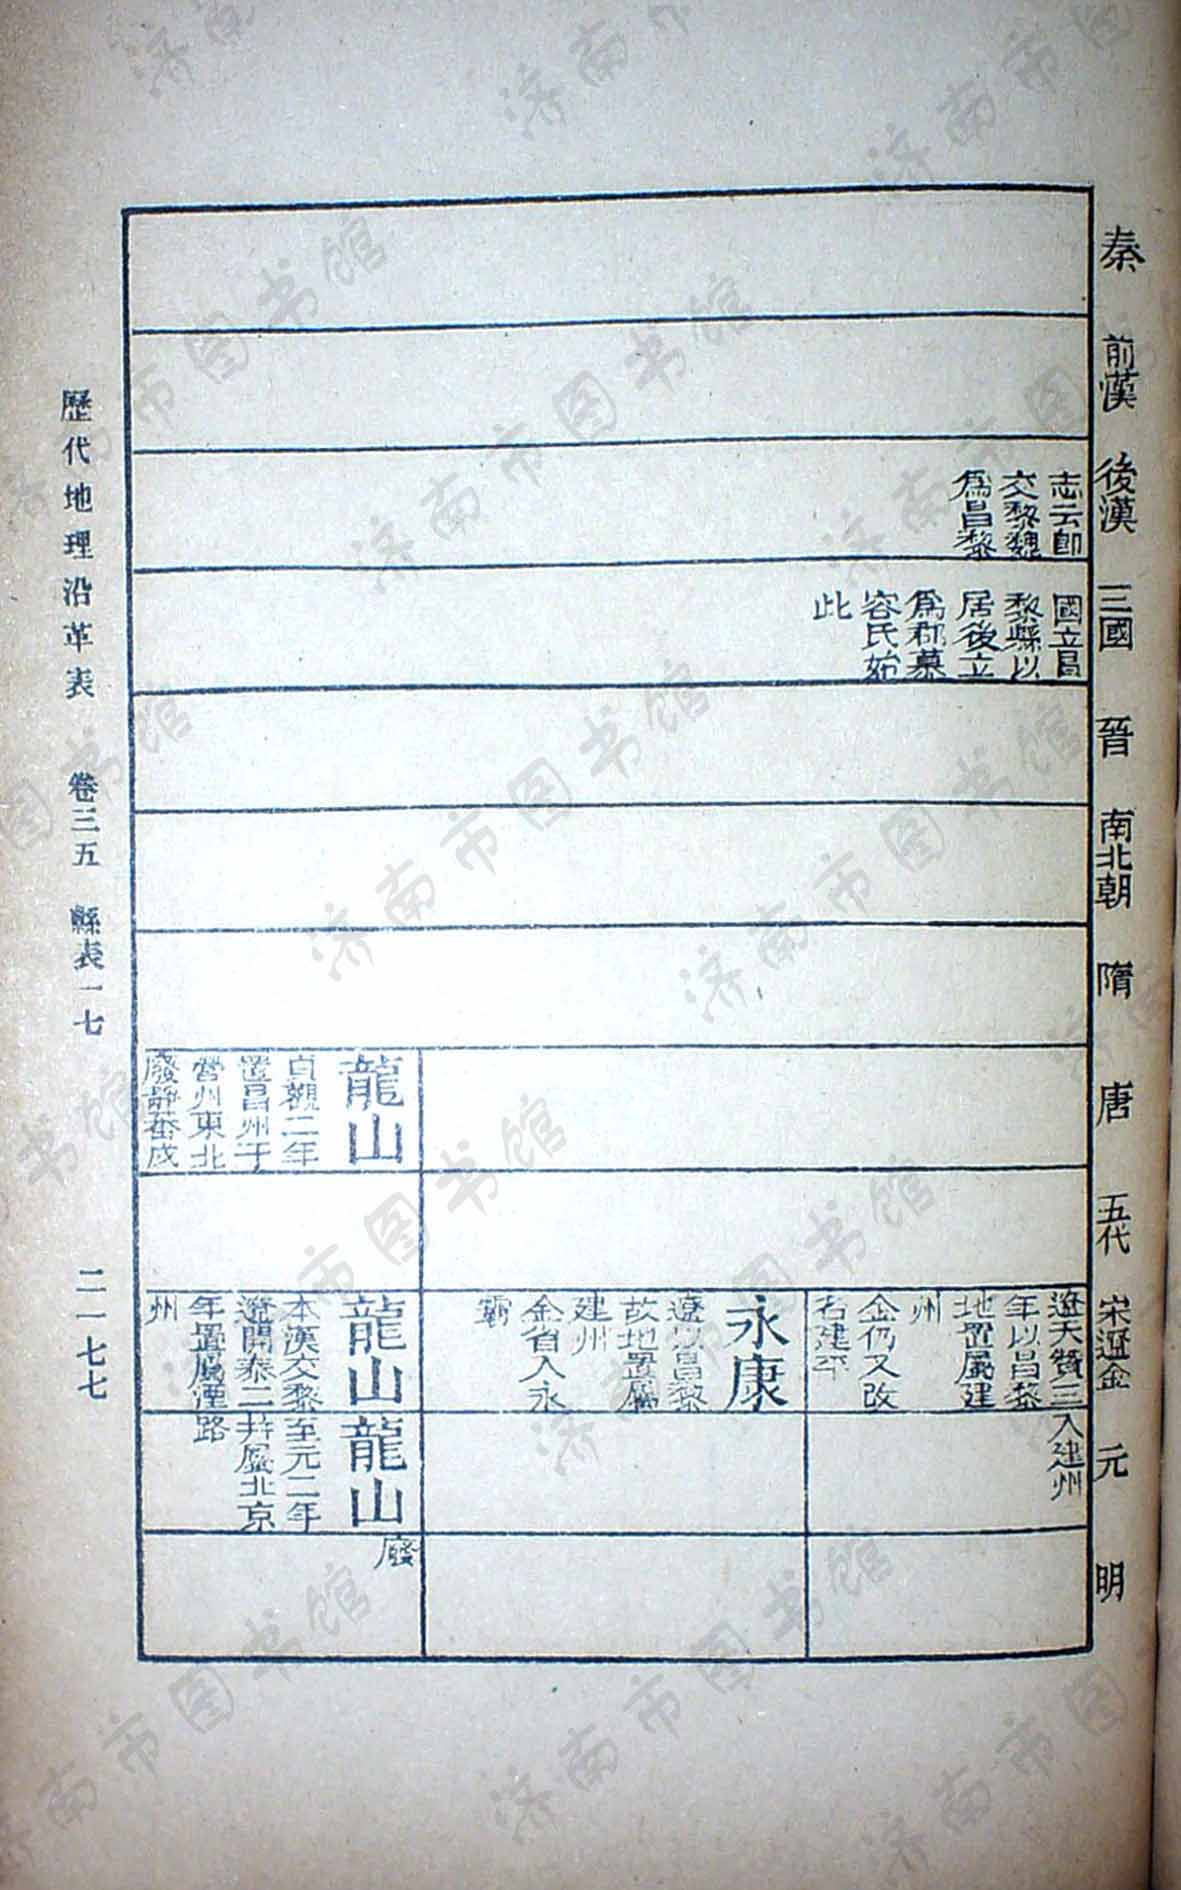 秦
前漢
後漢
三國
晉
南北朝
隋
唐
五代
宋遼金
元
明
志云卽
交黎魏
爲昌黎
國立昌
黎縣以
居後立
爲郡慕
容氏始
此
遼天贊三
年以昌黎
地置屬建
州
金仍又改
名建平
入建州
永康
遼以昌黎
故地置屬
建州
金省入永
霸
龍山
貞觀二年
置昌州于
營州東北
廢靜蕃戍
龍山
本漢交黎
遼開泰二
年置屬潭
州
龍山
至元二年
幷屬北京
路
廢
歷代地理沿革表 卷三五 縣表一七 二一七七
济南市图书馆